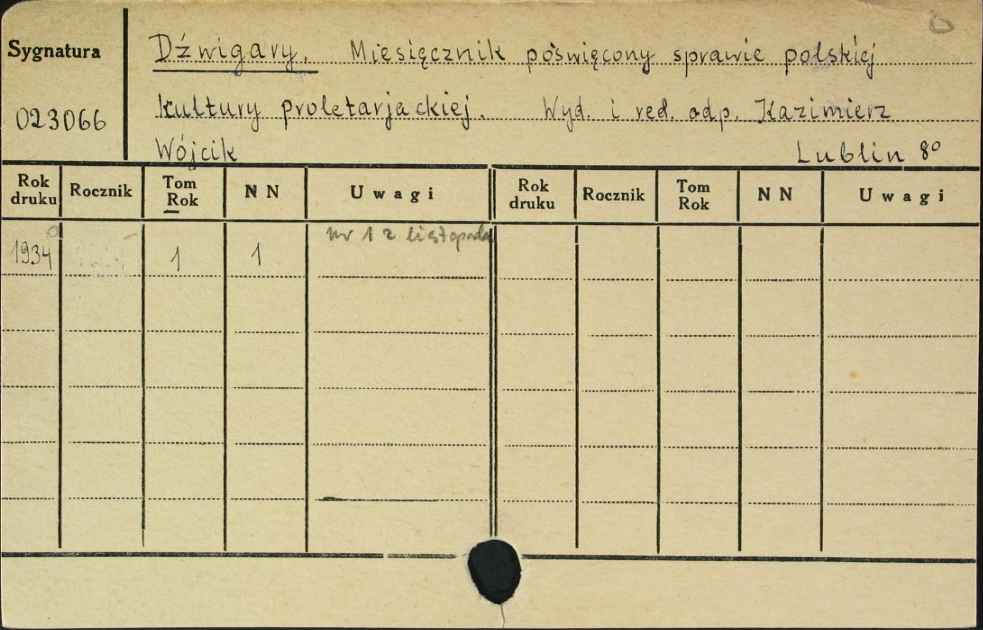 Sygnatura
Dźwigary. Miesięcznik poświęcony sprawie polskiej
023066
kultury proletarjackiej. Wyd. i red. odp. Kazimierz
Wójcik Lublin 8°
Rok druku Rocznik Tom Rok N N Uwagi Rok druku Rocznik Tom Rok N N Uwagi
nr 1 z listopada
1934 1 1